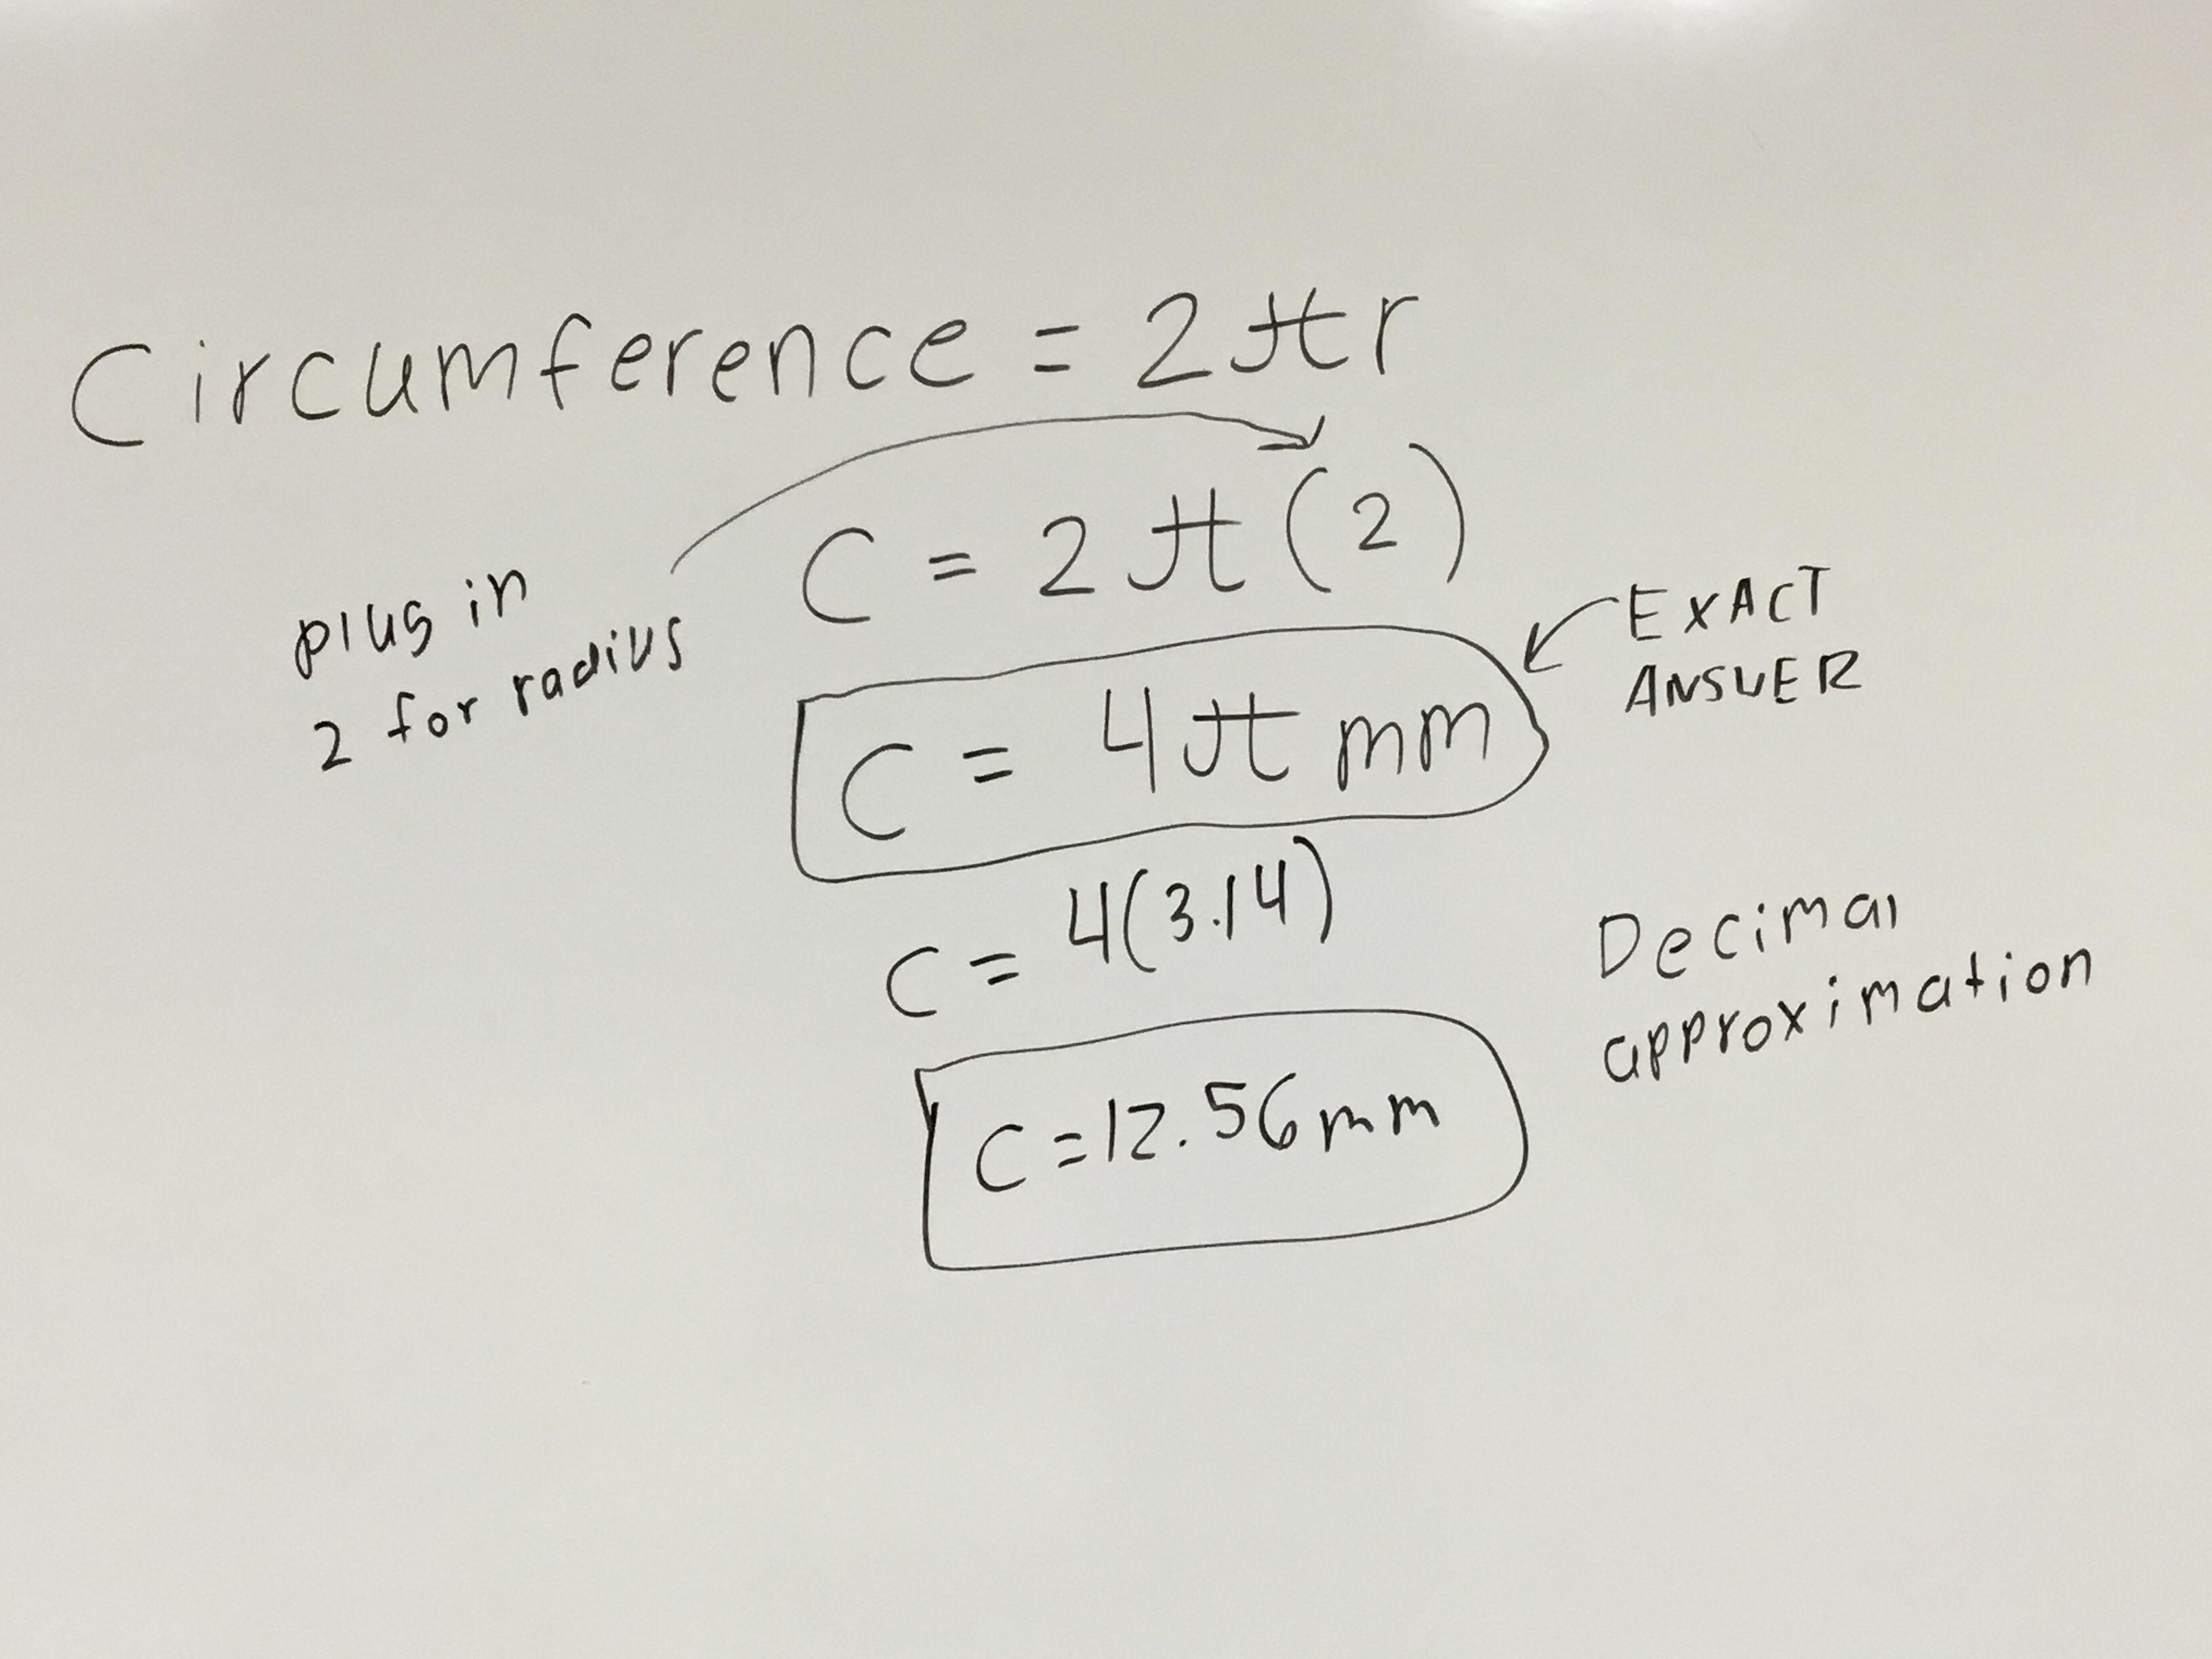 Circumference = 2πr
C = 2π(2)
plug in
2 for radius
EXACT
ANSWER
C = 4π mm
C = 4(3.14)
Decimal
approximation
C = 12.56mm